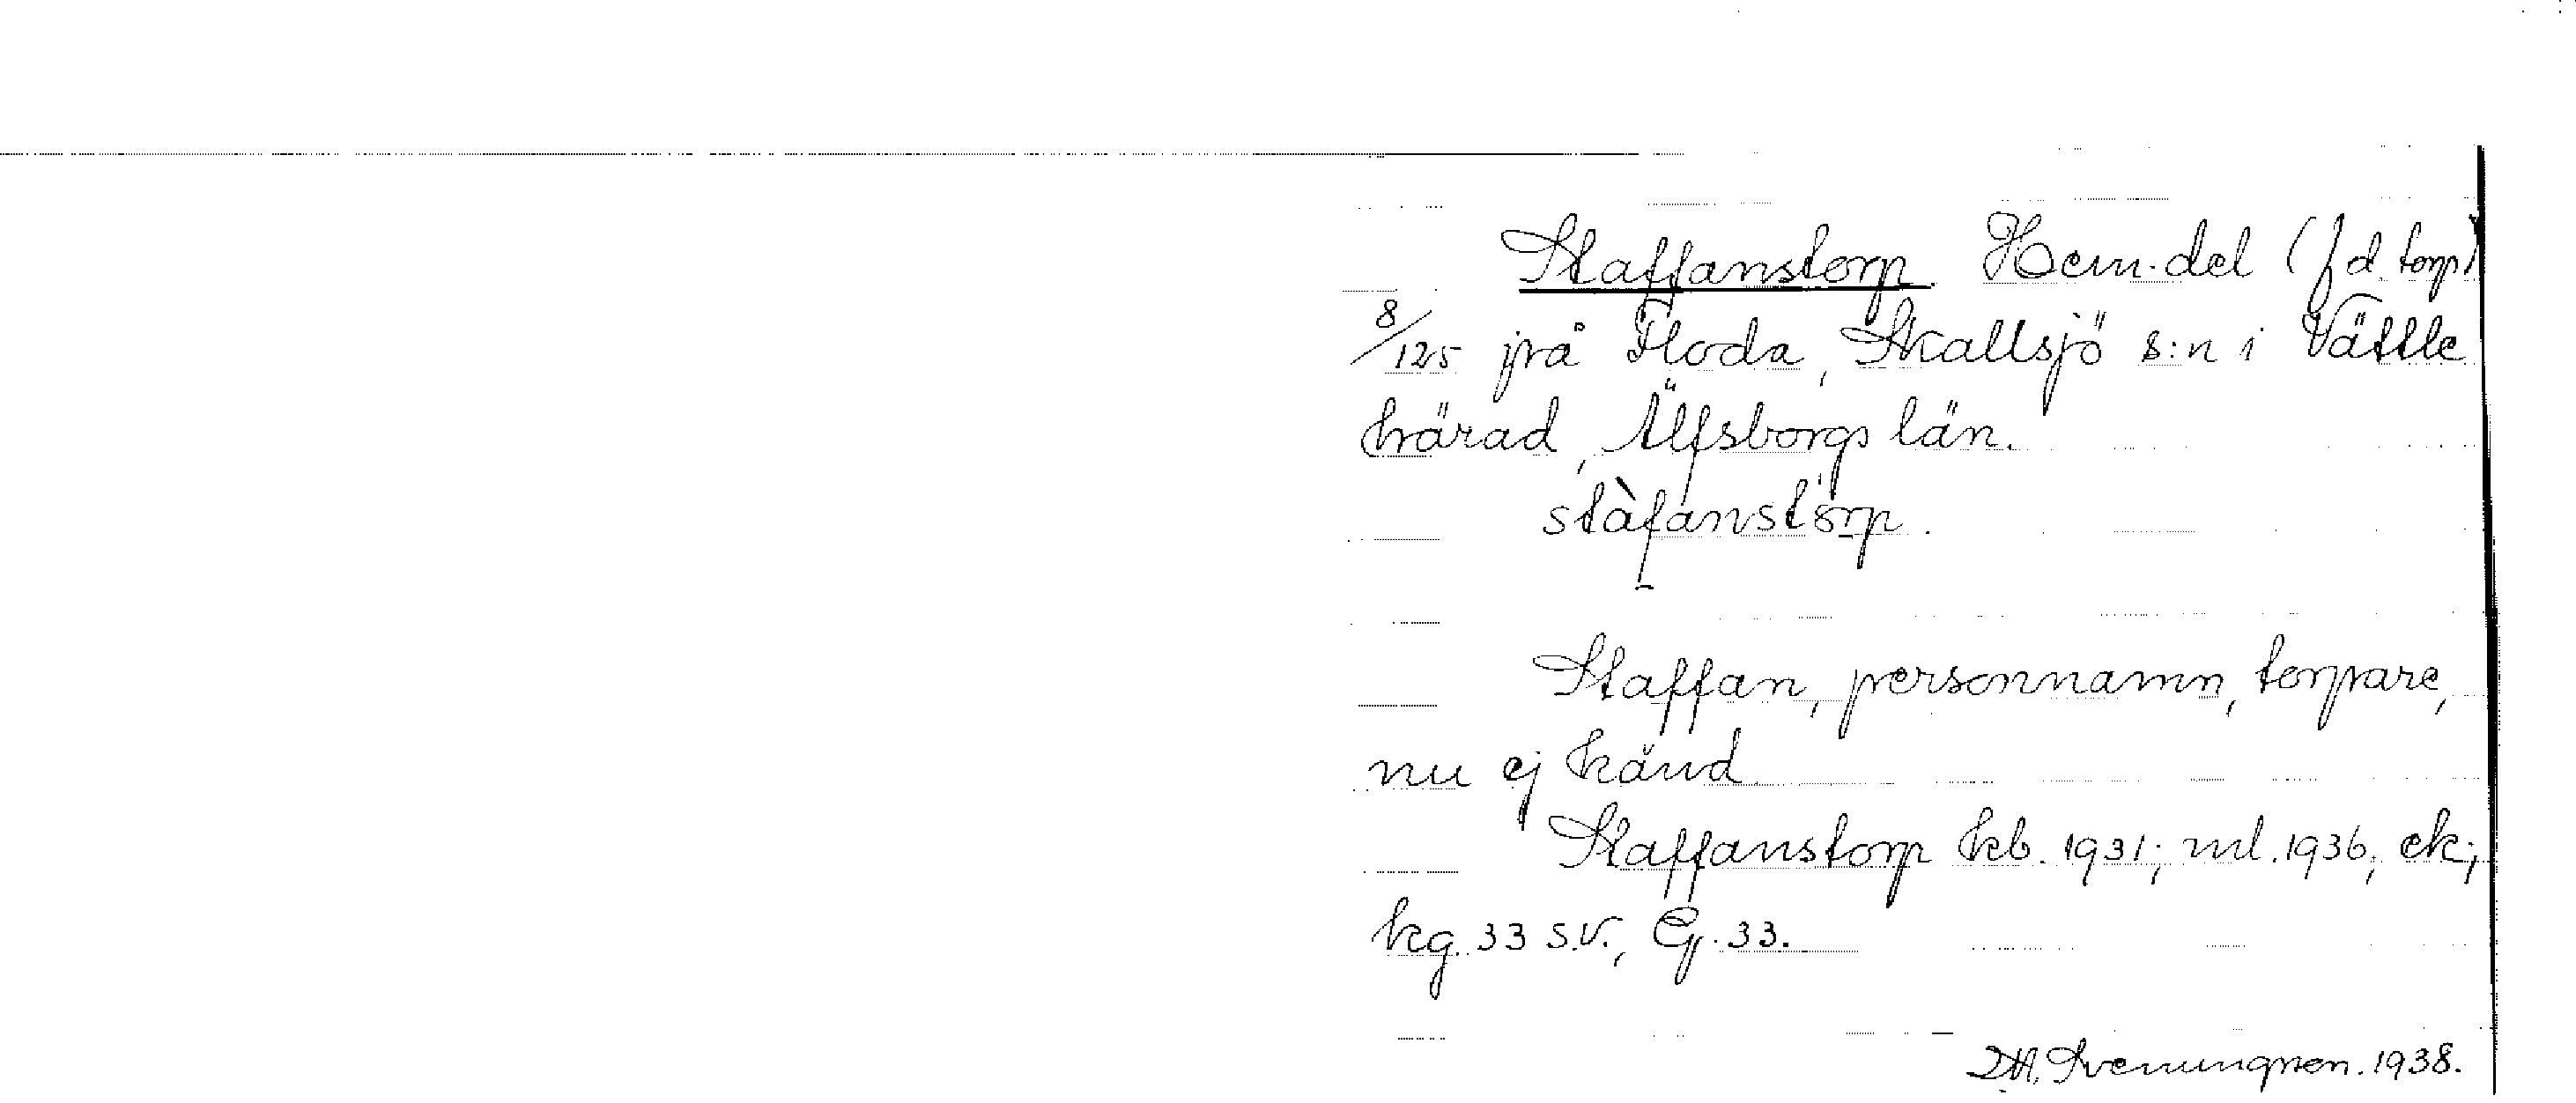 Staffanstorp. Hem.del (f d torp)
8/125 på Floda, Skallsjö s:n i Vättle
härad, Älfsborgs län.
stàfanstörp.
Staffan, personnamn, torpare,
nu ej känd
Staffanstorp kb. 1931; ml. 1936; ek;
kg. 33 s.v., G. 33.
Svenungsson. 1938.